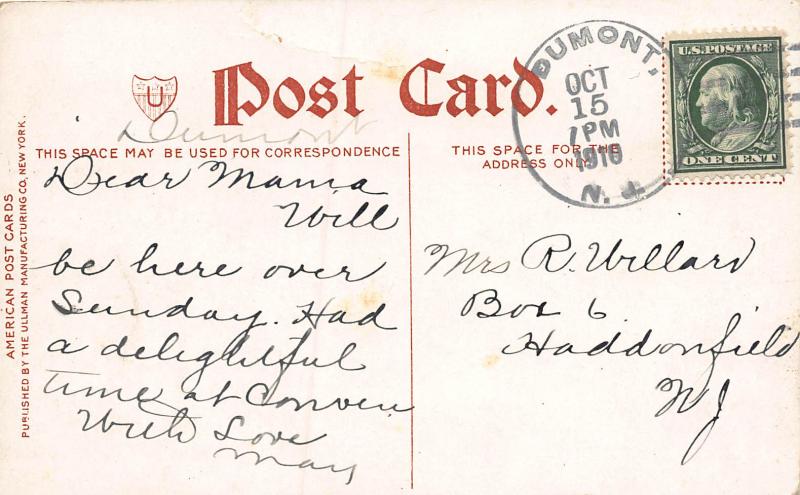 Post Card.
U
Dumont
THIS SPACE MAY BE USED FOR CORRESPONDENCE
Dear Mama
Will
be here over
Sunday. Had
a delightful
time at Conven
With Love
May
AMERICAN POST CARDS
PUBLISHED BY THE ULLMAN MANUFACTURING CO, NEW YORK.
THIS SPACE FOR THE
ADDRESS ONLY
DUMONT,
OCT
15
7 PM
1910
N. J.
U.S. POSTAGE
ONE CENT
Mrs R. Willard
Box 6
Haddonfield
NJ